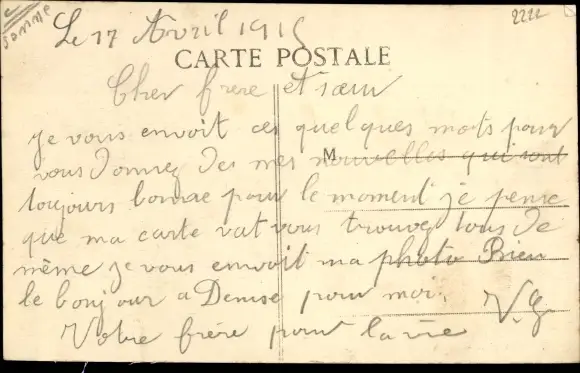 Somme
2222
Le 17 Avril 1915
CARTE POSTALE
Cher frere et sœur
Je vous envoit ces quelques mots pour
vous donnez des mes nouvelles qui sont
M
toujours bonne pour le moment je pense
que ma carte vat vous trouvez tous de
même je vous envoit ma photo Bien
le bonjour a Denise pour moi.
V. G
Votre frére pour la vie